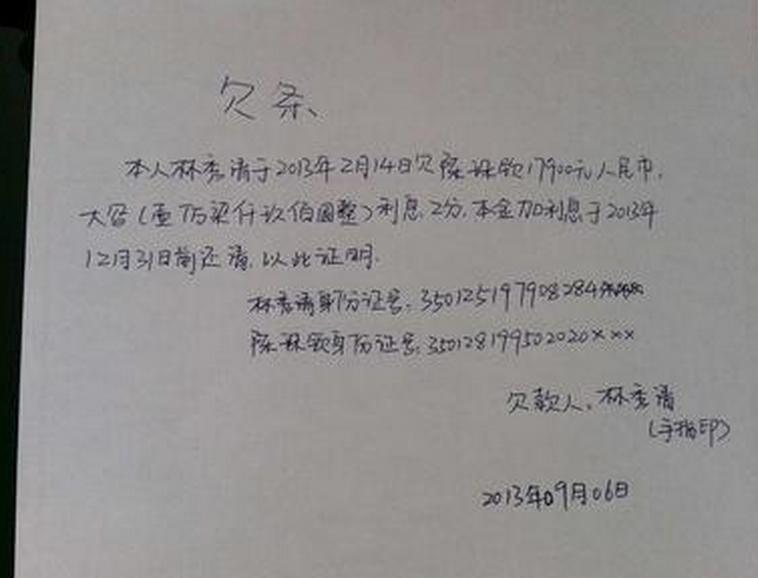 欠条、
本人林秀清于2013年2月14日欠陈妹钦17900元人民币,
大写(壹万柒仟玖佰圆整)利息2分,本金加利息于2013年
12月31日前还清,以此证明.
林秀清身份证号:350125197908284
陈妹钦身份证号:350128199502020×××
欠款人:林秀清
(手指印)
2013年09月06日